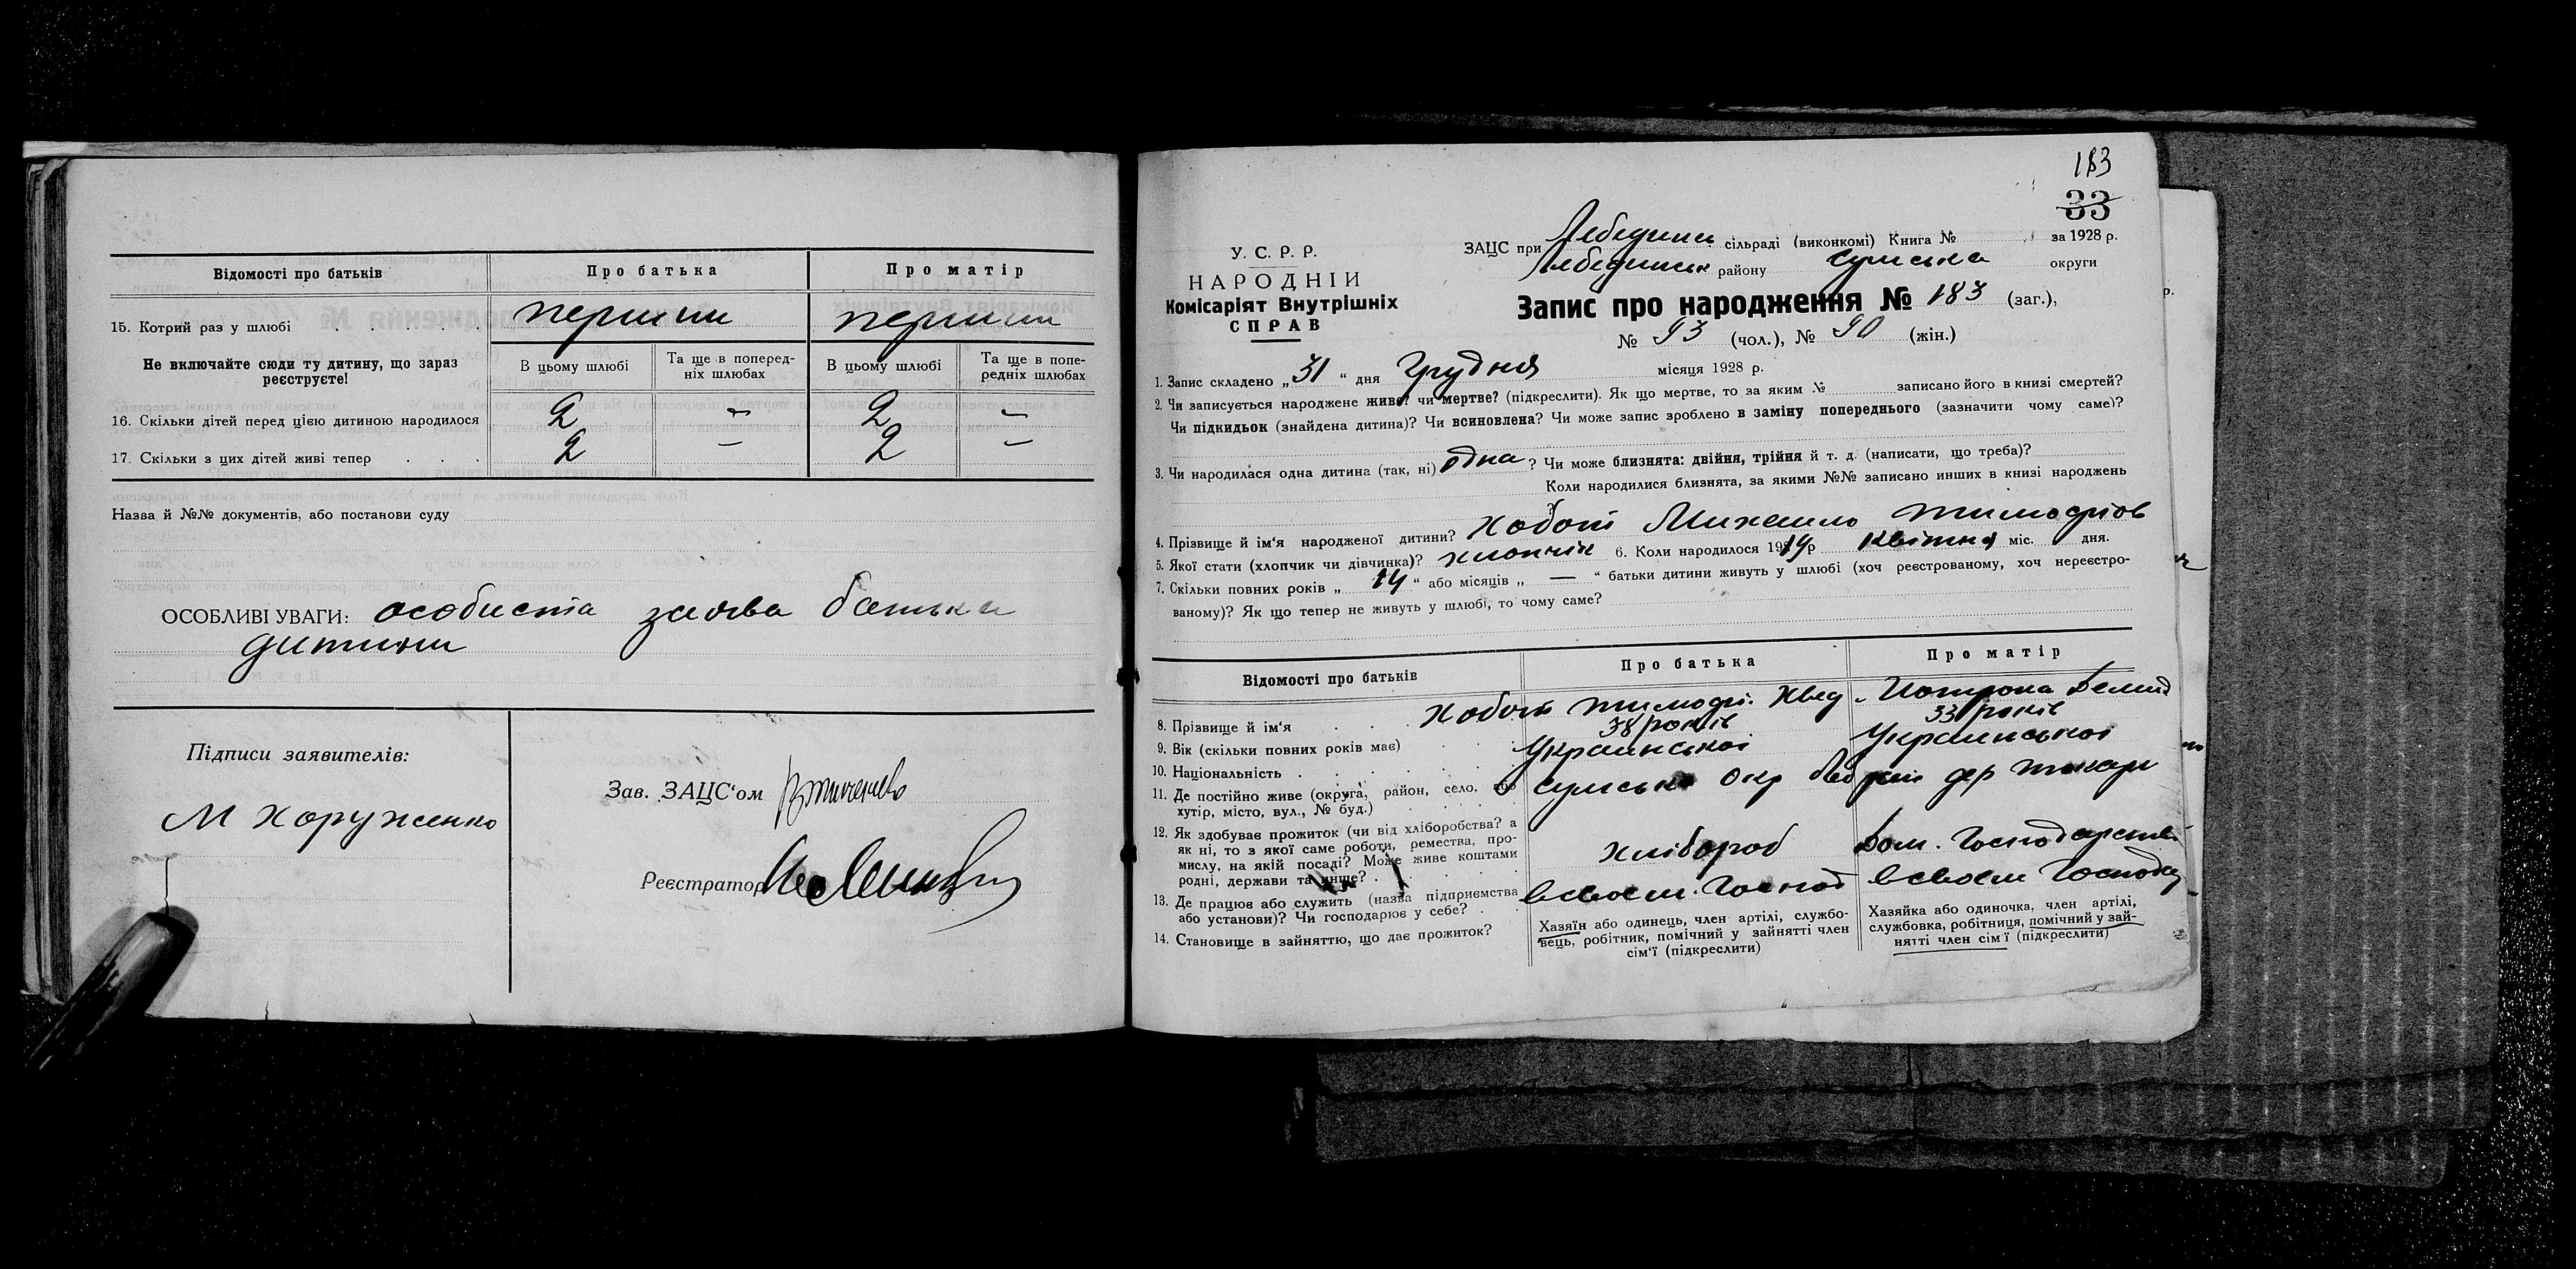 Відомості про батьків
Про батька
Про матір
15. Котрий раз у шлюбі . . . . .
перший
перший
Не включайте сюди ту дитину, що зараз
реєструєте!
В цьому шлюбі
Та ще в поперед-
ніх шлюбах
В цьому шлюбі
Та ще в попе-
редніх шлюбах
16. Скільки дітей перед цією дитиною народилося
2 – 2 –
17. Скільки з цих дітей живі тепер . . .
2 – 2 –
Назва й №№ документів, або постанови суду
ОСОБЛИВІ УВАГИ: особиста заява батька
дитини
Підписи заявителів:
М Хоруженко
Зав. ЗАЦС‘ом
Реєстратор
183
33
У. С. Р. Р.
НАРОДНІЙ
Комісаріят Внутрішніх
СПРАВ
ЗАЦС при Лебединск сільраді (виконкомі) Книга № за 1928 р.
Лебединськ району Сумська округи
Запис про народження № 183 (заг.),
№ 93 (чол.), № 90 (жін.)
1. Запис складено „31“ дня Грудня місяця 1928 р.
2. Чи записується народжене живе? чи мертве? (підкреслити). Як що мертве, то за яким № записано його в книзі смертей?
Чи підкидьок (знайдена дитина)? Чи всиновлена? Чи може запис зроблено в заміну попереднього (зазначити чому саме)?
3. Чи народилася одна дитина (так, ні) одна? Чи може близнята: двійня, трійня й т. д. (написати, що треба)?
Коли народилися близнята, за якими №№ записано инших в книзі народжень
4. Прізвище й ім‘я народженої дитини? Хобот Михайло Тимофіов
5. Якої стати (хлопчик чи дівчинка)? хлопчік 6. Коли народилося 1914р Квітня міс. дня.
7. Скільки повних років „14“ або місяців „—“ батьки дитини живуть у шлюбі (хоч реєстрованому, хоч нереєстро-
ваному)? Як що тепер не живуть у шлюбі, то чому саме?
Відомості про батьків
Про батька
Про матір
8. Прізвище й ім‘я . . Хобот Тимофі. Хвед
9. Вік (скільки повних років має) . . 38 років 33 років
10. Національність . . . . Украинскоі Украинськоі
11. Де постійно живе (округа, район, село, або
хутір, місто, вул., № буд.) . . . .
Сумська Окр Леб рай дер Токари
12. Як здобуває прожиток (чи від хліборобства? а
як ні, то з якої саме роботи, ремества, про-
мислу, на якій посаді? Може живе коштами
родні, держави та инше? . . . .
хлібороб
Дом. Господарстві
13. Де працює або служить (назва підприємства
або установи)? Чи господарює у себе? . .
в своем. Господ
в своем Господар
14. Становище в зайняттю, що дає прожиток?
Хазяїн або одинець, член артілі, службо-
вець, робітник, помічний у зайнятті член
сім‘ї (підкреслити)
Хазяйка або одиночка, член артілі,
службовка, робітниця, помічний у зай-
нятті член сім‘ї (підкреслити)